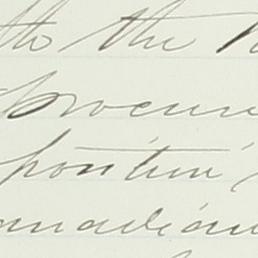 to the
procure
position
anadian